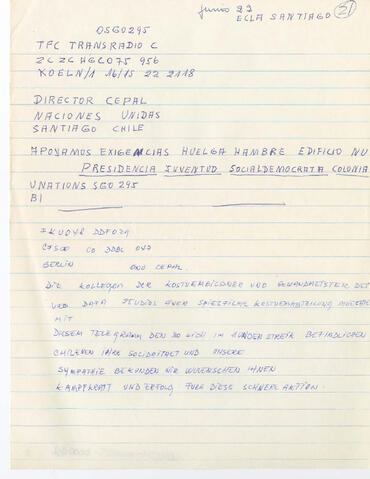 Junio 22
ECLA SANTIAGO
21
OSGO295
TFC TRANSRADIO C
ZCZC HGC075 956
KOELN/1 16/15 22 2118
DIRECTOR CEPAL
NACIONES UNIDAS
SANTIAGO CHILE
APOYAMOS EXIGENCIAS HUELGA HAMBRE EDIFICIO NU
PRESIDENCIA JUVENTUD SOCIALDEMOCRATA COLONIA
UNATIONS SGO 295
BI
BERLIN ONU CEPAL
DIE KOLLEGEN DER KOSTUEMBILDNER UND GEWANDMEISTER DES
VEB DEFA STUDIOS FUER SPIELFILME KOSTUEMABTEILUNG
MIT
DIESEM TELEGRAMM DEN SICH IM HUNGERSTREIK BEFINDLICHEN
CHILENEN IHRE SOLIDARITAET UND UNSERE
SYMPATHIE BEKUNDEN WIR WUENSCHEN IHNEN
KAMPFKRAFT UND ERFOLG FUER DIESE SCHWERE AKTION.